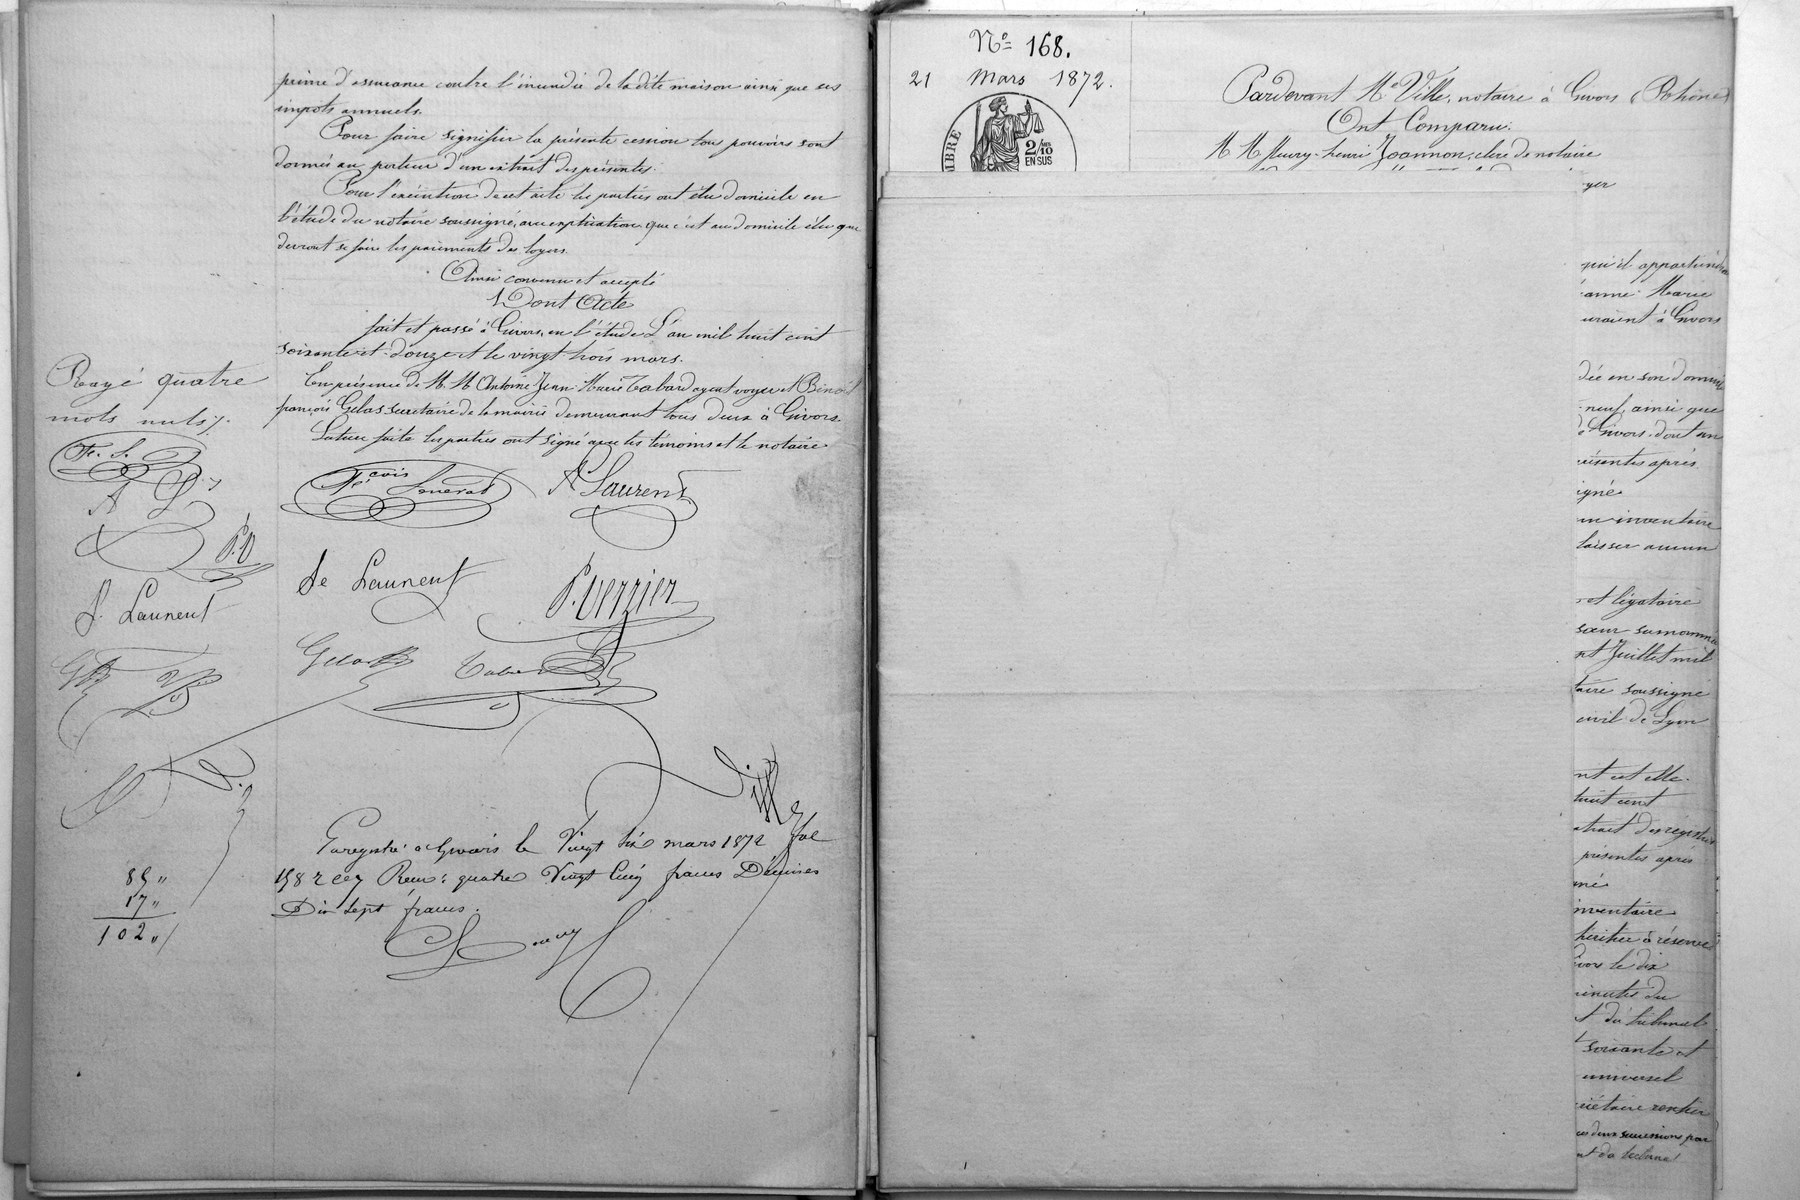 prime d'assurance contre l'incendie de ladite maison ainsi que ses
impots annuels.
Pour faire signifier la présente cession tous pouvoirs sont
donnés au porteur d'un extrait des présentes.
Pour l'exécution de cet acte les parties ont élu domicile en
l'étude du notaire soussigné, avec explication que c'est au domicile élu que
devront se faire les paiements des loyers.
Ainsi convenu et accepté
Dont Acte
fait et passé à Givors, en l'étude L'an mil huit cent
soixante et douze et le vingt trois mars.
En présence de M. M. Antoine Jean Marie Tabard agent voyer et Benoit
françois Gelas secrétaire de la mairie demeurant tous deux à Givors
Lecture faite les parties ont signé avec les témoins et le notaire
Rayé quatre
mots nuls.
F. S.
A L
P. V
J. Laurent
Fçois
A Laurent
Je Laurent
P. Verzier
Gelas
Tabard
Ville
Enregistré à Givors le Vingt six mars 1872 fol
158 r c 7 Reçu : quatre Vingt Cinq francs Décimes
Dix sept francs.
85 "
17 "
102 "
No 168.
21 Mars 1872.
TIMBRE
2/10
EN SUS
Pardevant Me Ville, notaire à Givors (Rhône)
Ont Comparu:
M. M. fleury-henri Joannon, clerc de notaire
yer
qu'il appartiendra
anne Marie
uraient à Givors
dée en son domicile
neuf, ainsi que
Givors, dont un
présentes après
igné
un inventaire
laisser aucun
et légataire
sœur surnommée
nt Juillet mil
taire soussigné
civil de Lyon
nt cet elle.
huit cent
extrait des registres
présentes après
né
inventaire
héritier à réserve
vors le dix
minutes du
t du tribunal
soixante et
universel
riétaire rentier
ces deux successions par
nt du tribunal